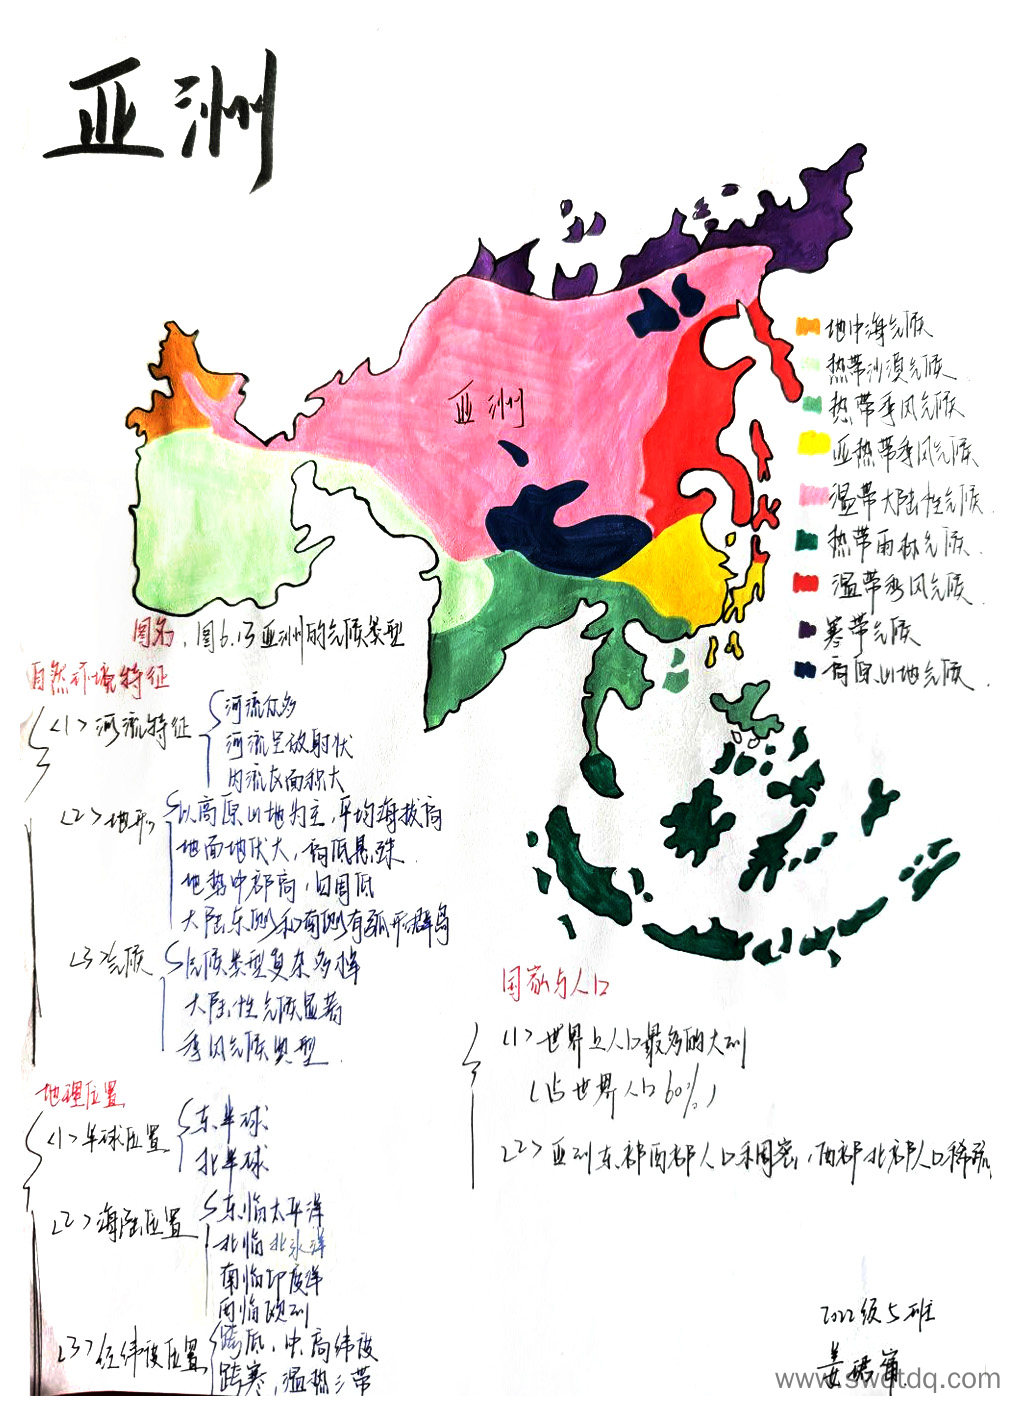 亚洲
亚洲
地中海气候
热带沙漠气候
热带季风气候
亚热带季风气候
温带大陆性气候
热带雨林气候
温带季风气候
寒带气候
高原山地气候
图名:图6.13亚洲的气候类型
自然环境特征
<1>河流特征
河流众多
河流呈放射状
内流区面积大
<2>地形
以高原山地为主,平均海拔高
地面地伏大,高低悬殊.
地势中部高,四周低
大陆东侧和南侧有弧形群岛
<3>气候
气候类型复杂多样
大陆性气候显著
季风气候典型.
地理位置
<1>半球位置
东半球
北半球
<2>海陆位置
东临太平洋
北临北冰洋
南临印度洋
西临欧洲
<3>经纬度位置
跨低,中,高纬度
跨寒,温热三带
国家与人口
<1>世界上人口最多的大洲
(占世界人口60%)
<2>亚洲东部西部人口稠密,西部北部人口稀疏
2022级5班
姜珺
www.swdtdq.com